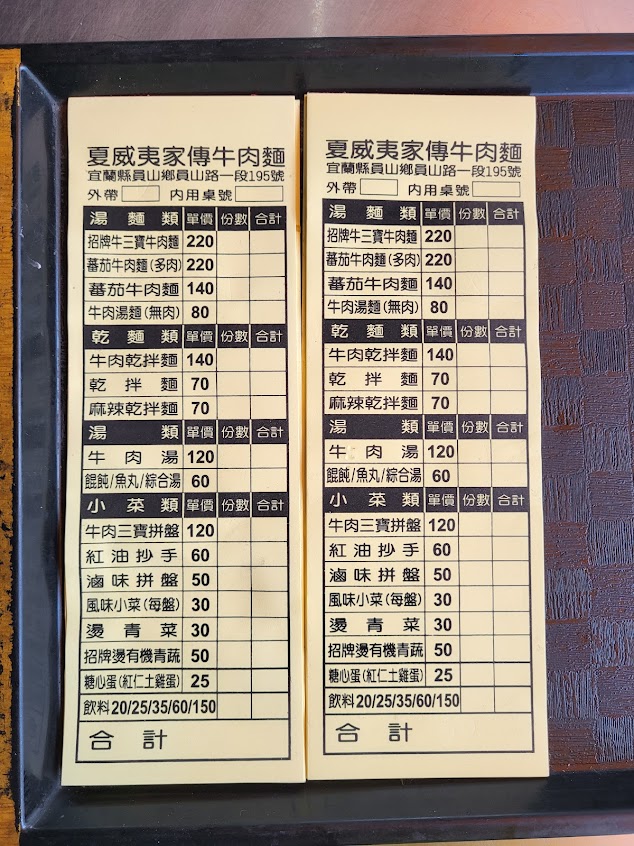 夏威夷家傳牛肉麵
宜蘭縣員山鄉員山路一段195號
外帶 內用桌號
湯麵類 單價 份數 合計
招牌牛三寶牛肉麵 220
蕃茄牛肉麵(多肉) 220
蕃茄牛肉麵 140
牛肉湯麵(無肉) 80
乾麵類 單價 份數 合計
牛肉乾拌麵 140
乾拌麵 70
麻辣乾拌麵 70
湯類 單價 份數 合計
牛肉湯 120
餛飩/魚丸/綜合湯 60
小菜類 單價 份數 合計
牛肉三寶拼盤 120
紅油抄手 60
滷味拼盤 50
風味小菜(每盤) 30
燙青菜 30
招牌燙有機青蔬 50
糖心蛋(紅仁土雞蛋) 25
飲料20/25/35/60/150
合計
夏威夷家傳牛肉麵
宜蘭縣員山鄉員山路一段195號
外帶 內用桌號
湯麵類 單價 份數 合計
招牌牛三寶牛肉麵 220
蕃茄牛肉麵(多肉) 220
蕃茄牛肉麵 140
牛肉湯麵(無肉) 80
乾麵類 單價 份數 合計
牛肉乾拌麵 140
乾拌麵 70
麻辣乾拌麵 70
湯類 單價 份數 合計
牛肉湯 120
餛飩/魚丸/綜合湯 60
小菜類 單價 份數 合計
牛肉三寶拼盤 120
紅油抄手 60
滷味拼盤 50
風味小菜(每盤) 30
燙青菜 30
招牌燙有機青蔬 50
糖心蛋(紅仁土雞蛋) 25
飲料20/25/35/60/150
合計